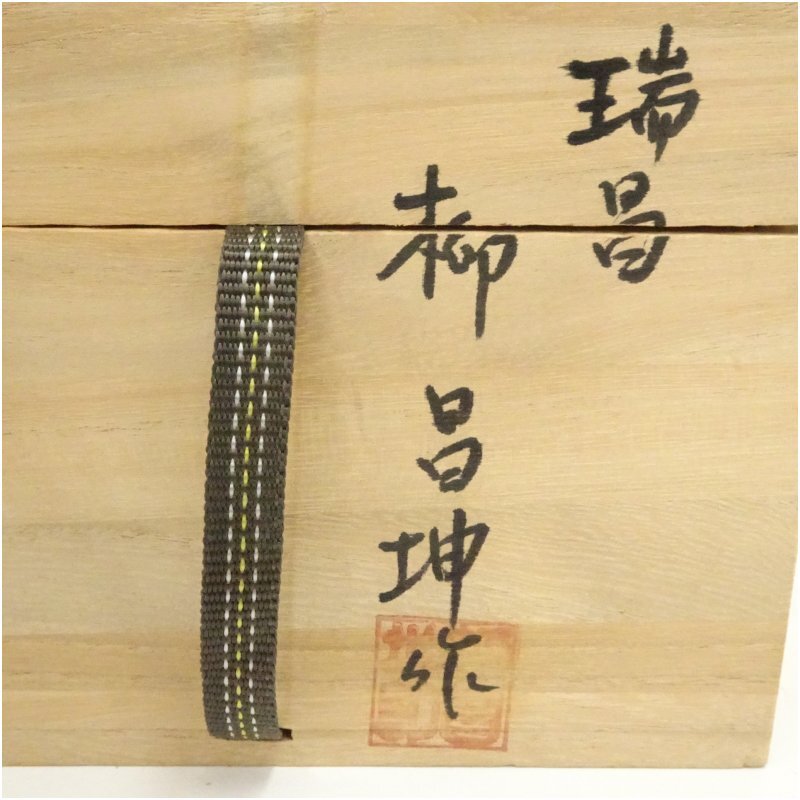 瑞昌
柳昌坤作